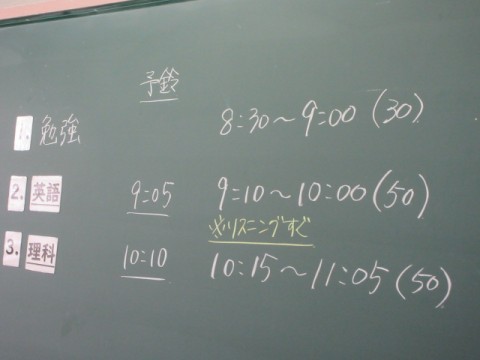 予鈴
1. 勉強 8:30～9:00 (30)
2. 英語 9:05 9:10～10:00 (50)
※リスニングすぐ
3. 理科 10:10 10:15～11:05 (50)